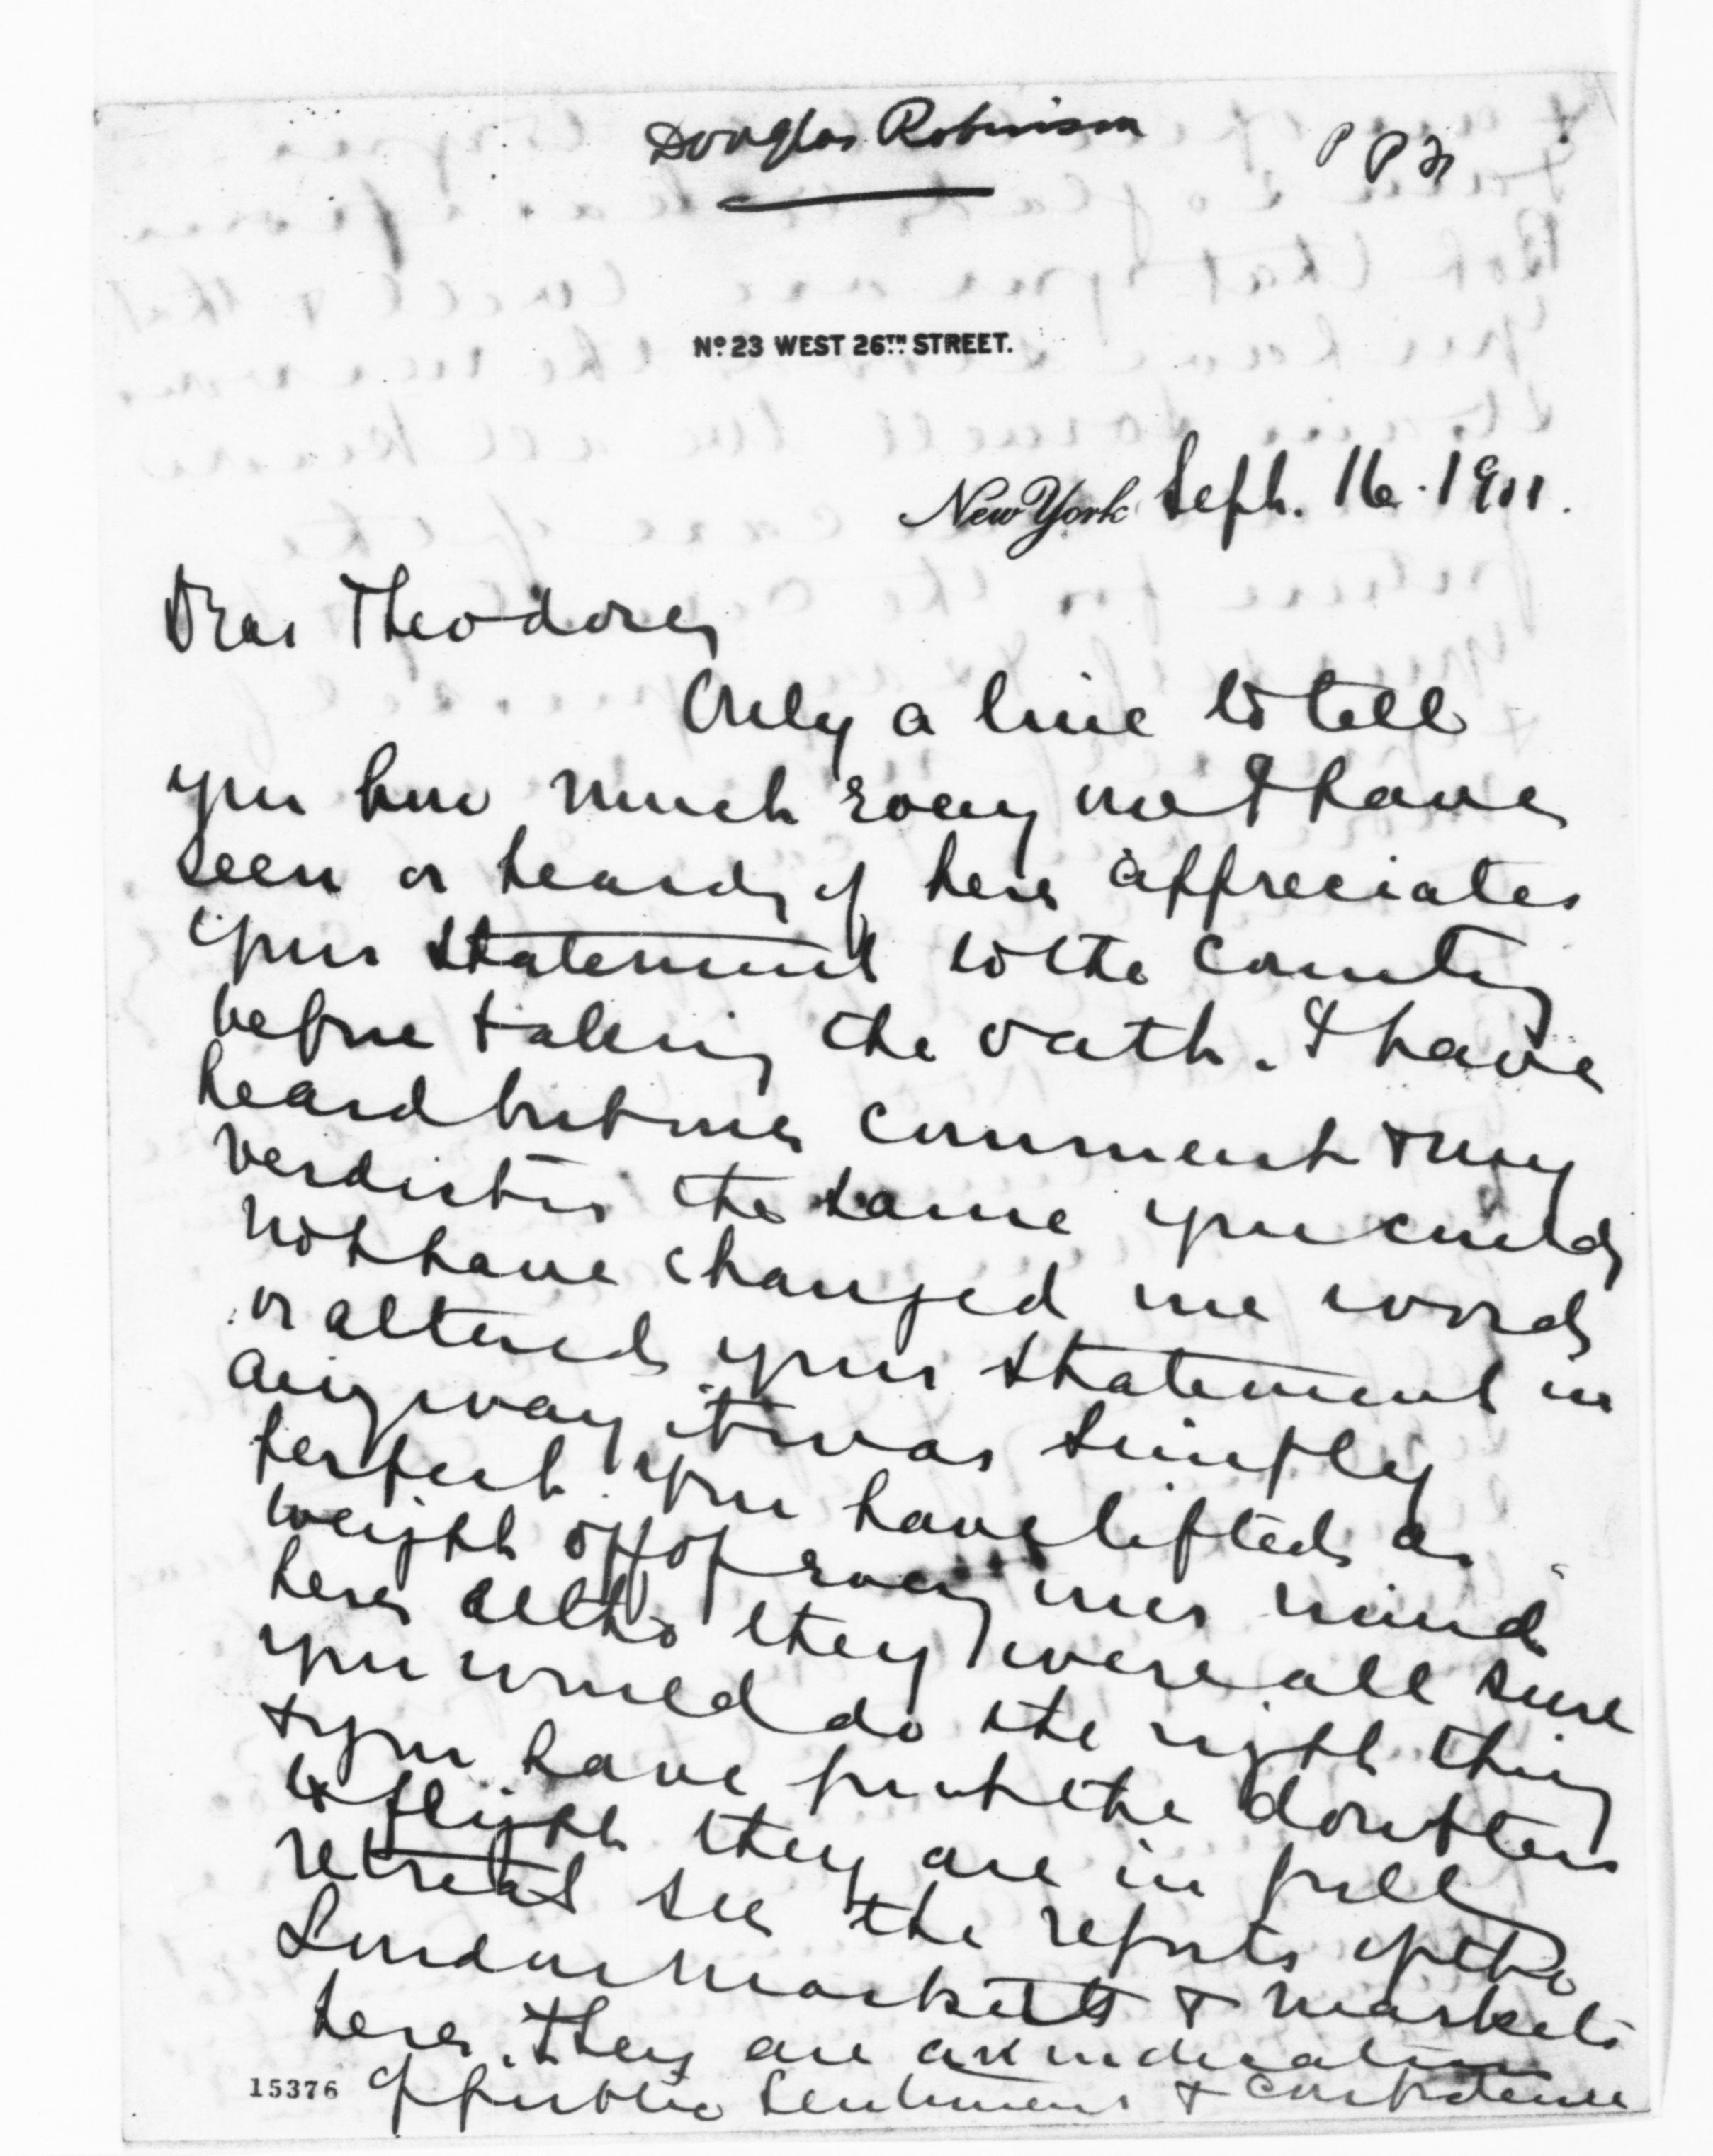 Douglas Robinson
PPF
No 23 WEST 26TH STREET.
New York Sept. 16. 1901.
Dear Theodore,
Only a line to tell
you how much every one I have
seen or heard of here appreciates
your statement to the Country
before taking the oath. I have
heard but one comment & any
verdict is the same you could
not have changed one word
or altered your statement in
any way it was simply
perfect. You have lifted a
weight off of every ones mind
here altho they were all sure
you would do the right thing
& you have put the doubters
to flight they are in full
retreat see the reports of the
London markets & markets
here. They are an indication
of public sentiment & confidence
15376